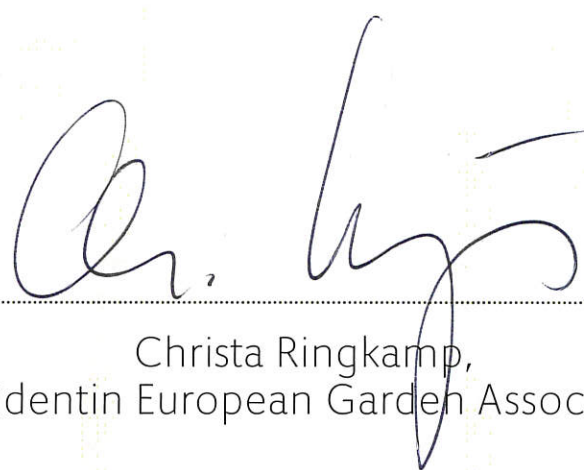 Christa Ringkamp,
dentin European Garden Assoc